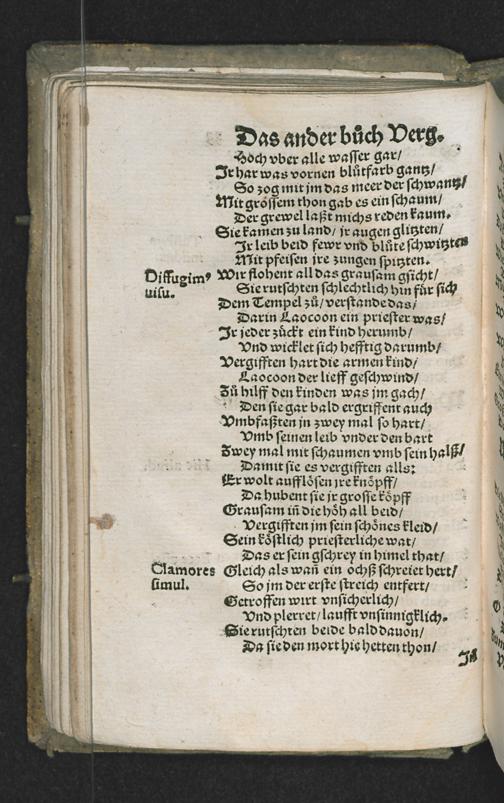 Das ander bůch Verg.
Hoch vber alle wasser gar/
Ir har was vornen blůtfarb gantz/
So zog mit jm das meer der schwantz/
Mit grossem thon gab es ein schaum/
Der grewel laßt michs reden kaum.
Sie kamen zu land/ jr augen glitzten/
Ir leib beid fewr vnd blůte schwitzten
Mit pfeisen jre zungen spitzten.
Diffugim⁹
uisu.
Wir flohent all das grausam gsicht/
Sie rutschten schlechtlich hin für sich
Dem Tempel zů/ verstande das/
Darin Laocoon ein priester was/
Ir jeder zückt ein kind herumb/
Vnd wicklet sich hefftig darumb/
Vergifften hart die armen kind/
Laocoon der lieff geschwind/
Zů hilff den kinden was jm gach/
Den sie gar bald ergriffent auch
Vmbfaßten in zwey mal so hart/
Vmb seinen leib vnder den bart
Zwey mal mit schaumen vmb sein halß/
Damit sie es vergifften alls:
Er wolt aufflösen jre knöpff/
Da hubent sie jr grosse köpff
Grausam in̄ die höh all beid/
Vergifften jm sein schönes kleid/
Sein köstlich priesterliche wat/
Das er sein gschrey in himel that/
Clamores
simul.
Gleich als wan̄ ein ochß schreiet hert/
So jm der erste streich entfert/
Getroffen wirt vnsicherlich/
Vnd plerret/ laufft vnsinnigklich.
Sie rutschten beide bald dauon/
Da sie den mort hie hetten thon/